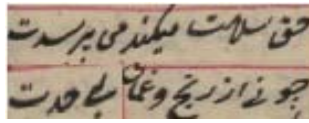 حق سلامت میکند می پرسدت
چونے از رنج و غمان بے حدت